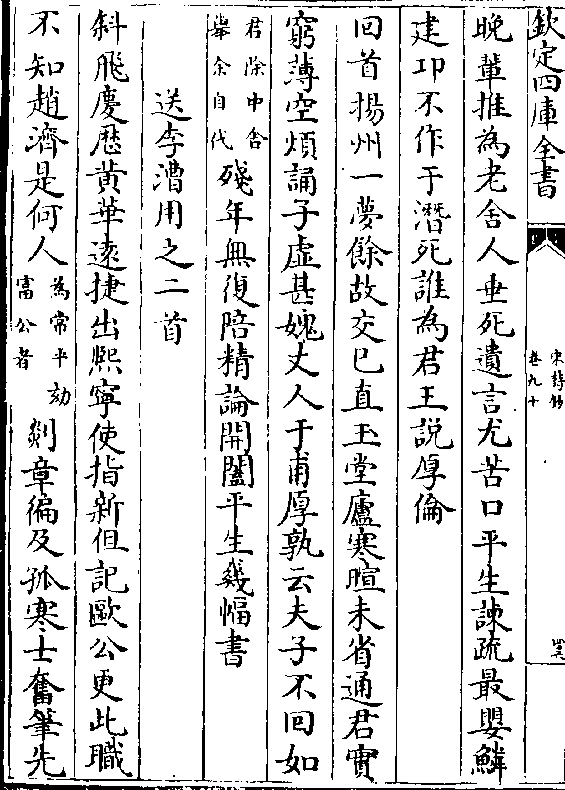 欽定四庫全書
宋詩鈔
卷九十
晚輩推為老舍人垂死遺言尤苦口平生諫疏最嬰鱗
建卭不作于潛死誰為君王說厚倫
回首揚州一夢餘故交已直玉堂廬寒暄未省通君實
窮薄空煩誦子虛甚媿丈人于甫厚孰云夫子不回如
君除中舍
舉余自代
殘年無復陪精論開闔平生幾幅書
送李漕用之二首
斜飛慶歷黄華遠捷出熙寧使指新但記歐公更此職
不知趙濟是何人
為常平劾
富公者
剡章徧及孤寒士奮筆先